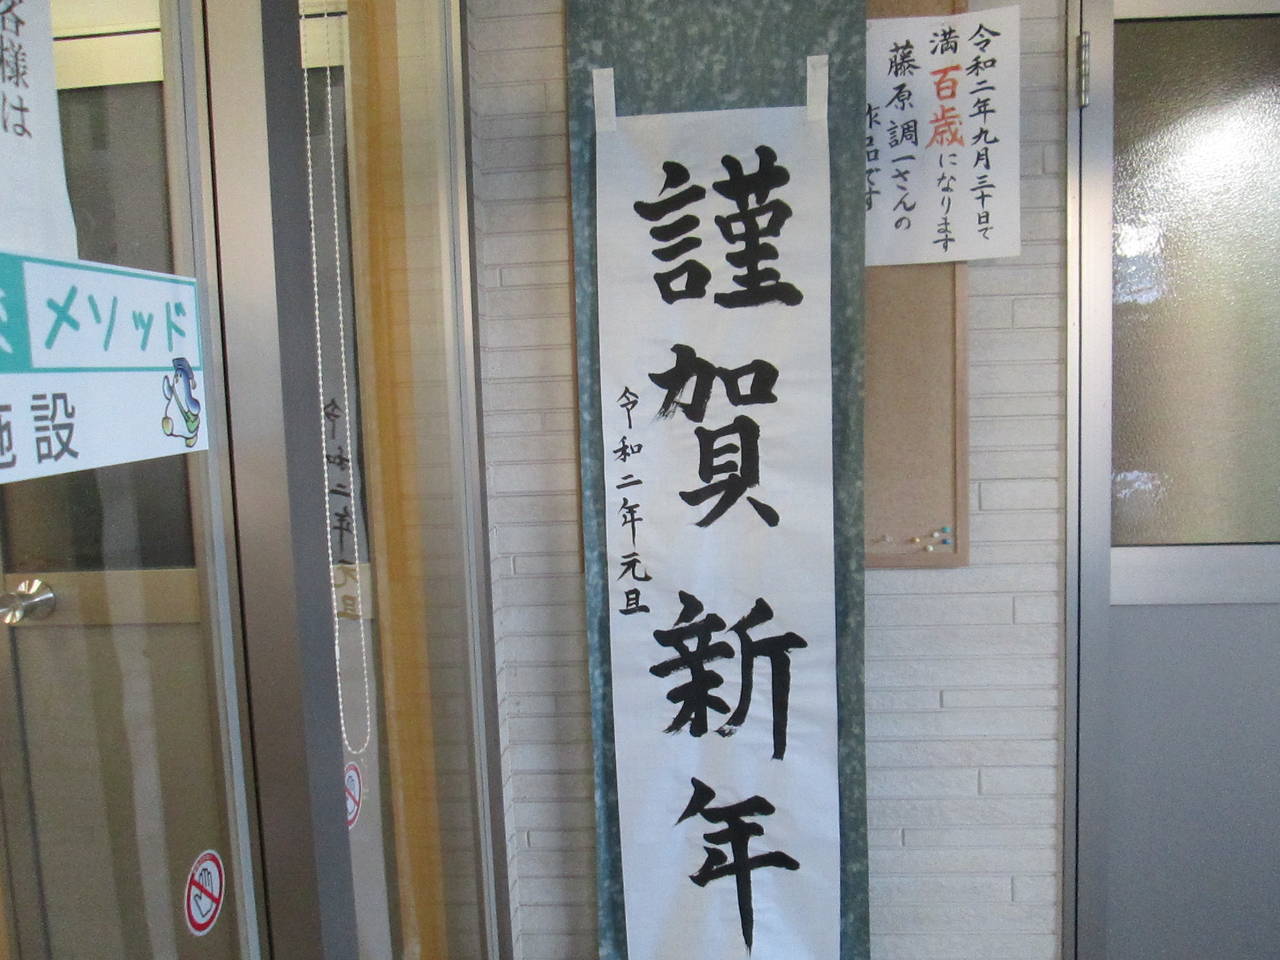 謹賀新年
令和二年元旦
令和二年九月三十日で
満百歳になります
藤原調一さんの
作品です
客様は
メソッド
施設